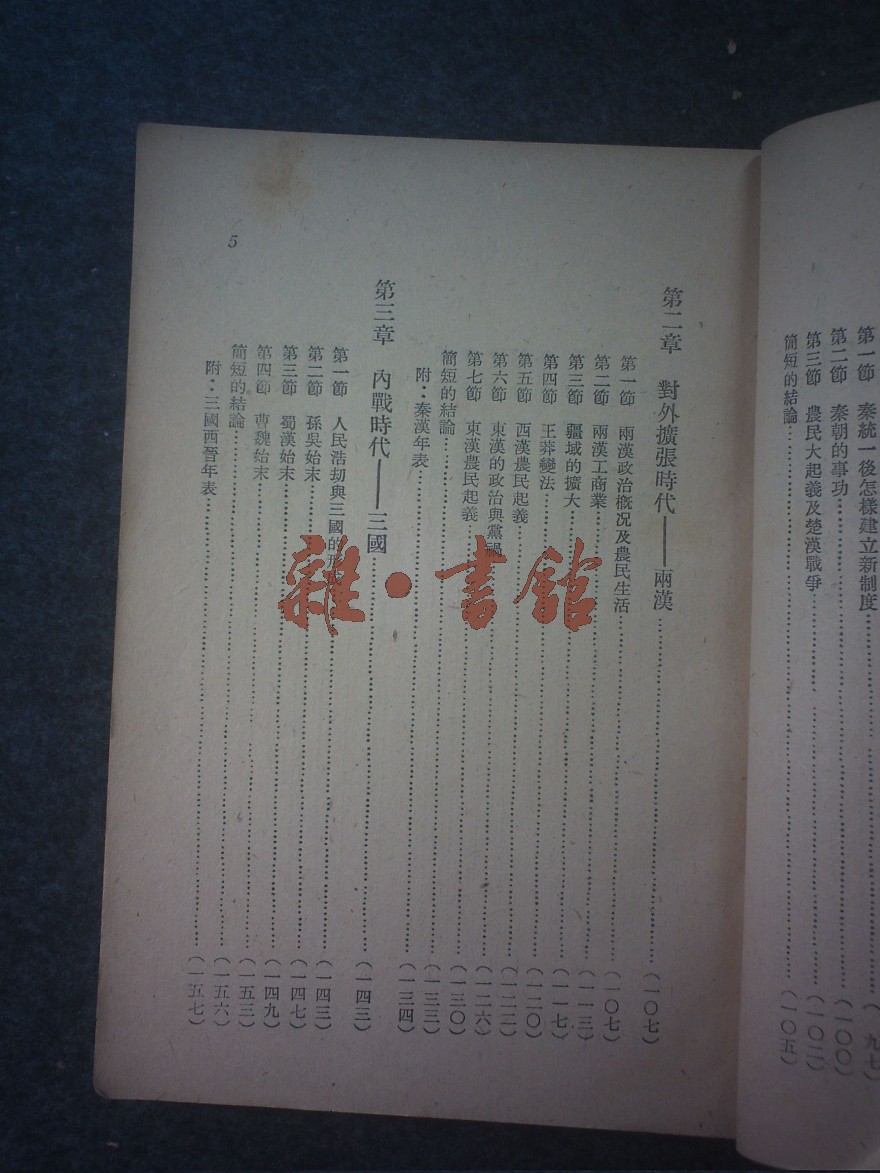 第一節 秦統一後怎樣建立新制度……(九七)
第二節 秦朝的事功……(一〇〇)
第三節 農民大起義及楚漢戰爭……(一〇二)
簡短的結論……(一〇五)
第二章 對外擴張時代——兩漢……(一〇七)
第一節 兩漢政治概况及農民生活……(一〇七)
第二節 兩漢工商業……(一一三)
第三節 疆域的擴大……(一一七)
第四節 王莽變法……(一二〇)
第五節 西漢農民起義……(一二二)
第六節 東漢的政治與黨禍……(一二六)
第七節 東漢農民起義……(一三〇)
簡短的結論……(一三三)
附：秦漢年表……(一三四)
第三章 內戰時代——三國……(一四三)
第一節 人民浩劫與三國的形成……(一四三)
第二節 孫吳始末……(一四七)
第三節 蜀漢始末……(一四九)
第四節 曹魏始末……(一五三)
簡短的結論……(一五六)
附：三國西晉年表……(一五七)
5
雜·書館